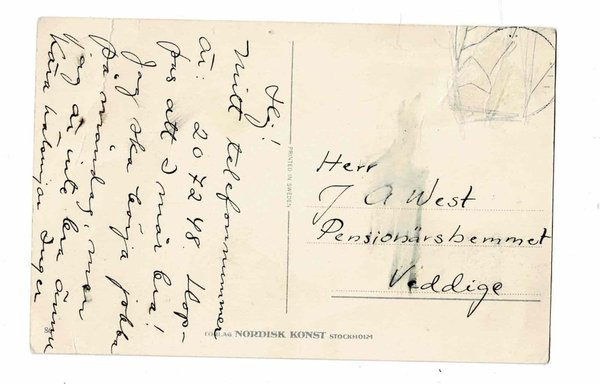 Hej!
Mitt telefonnummer
är: 207248. Hop-
pas att I mår bra!
Jag ska börja jobba
på måndag, men
jag är inte bra ännu
Kära hälsningar Inger
PRINTED IN SWEDEN
Herr
J A West
Pensionärshemmet
Veddige
FÖRLAG NORDISK KONST STOCKHOLM